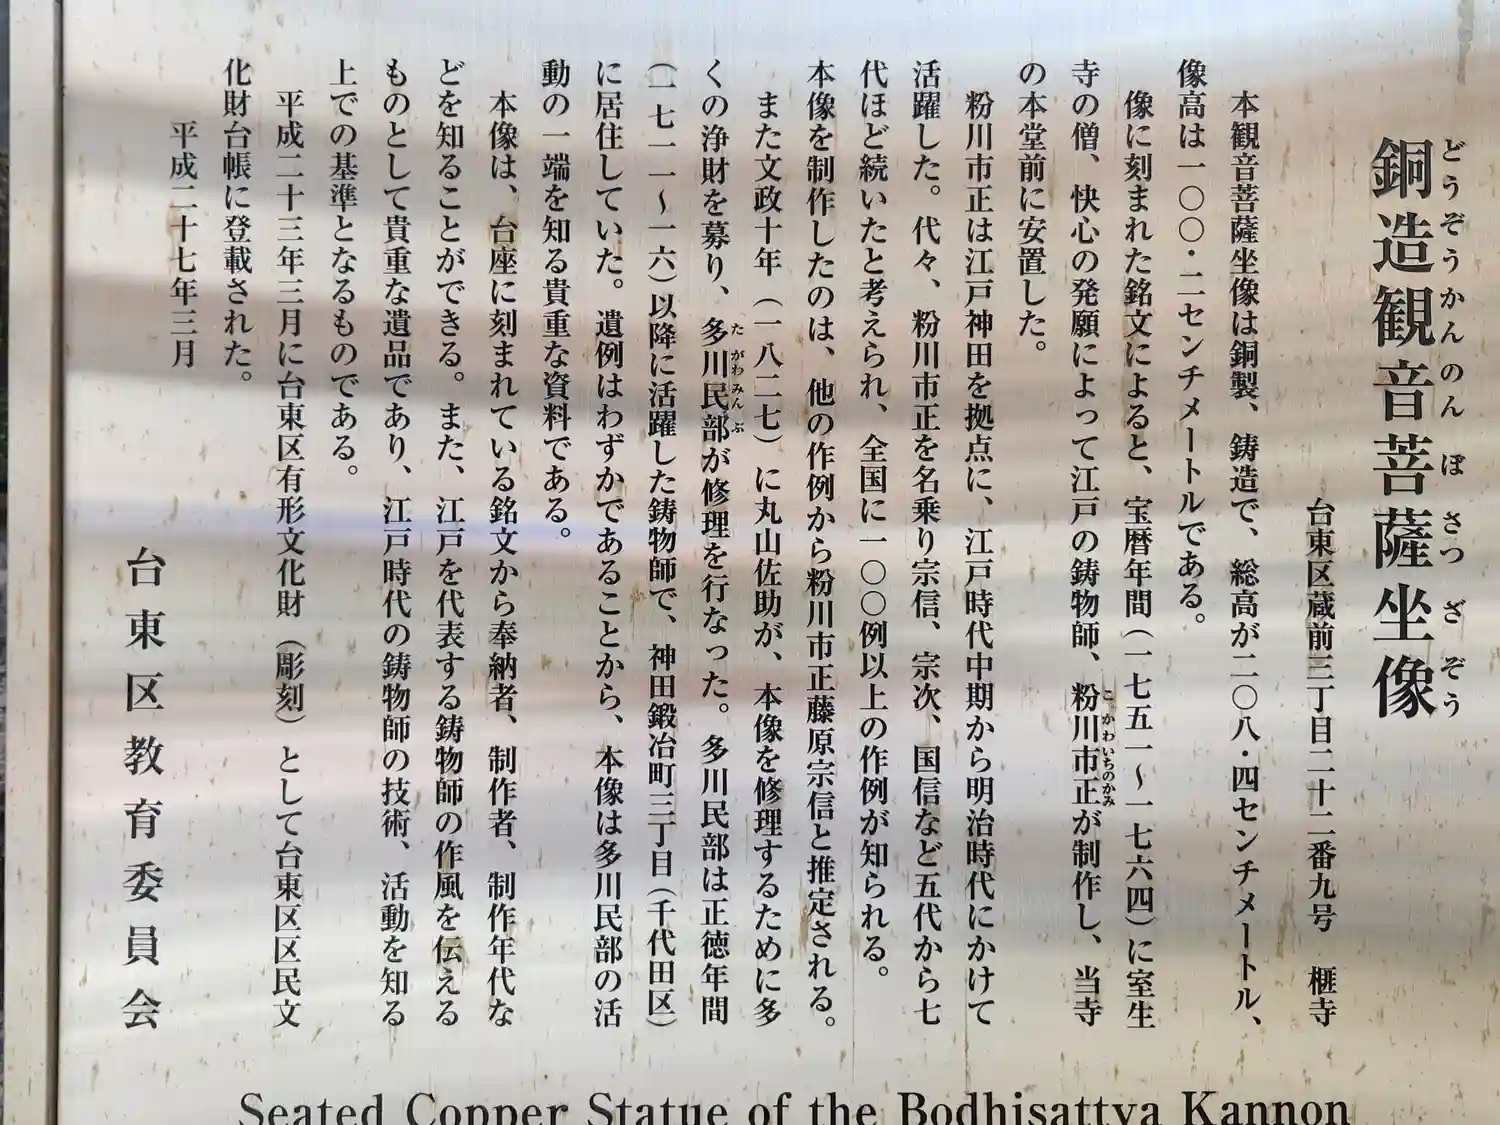 銅造観音菩薩坐像
どうぞうかんのんぼさつざぞう
台東区蔵前三丁目二十二番九号 榧寺
本観音菩薩坐像は銅製、鋳造で、総高が二〇八・四センチメートル、
像高は一〇〇・二センチメートルである。
像に刻まれた銘文によると、宝暦年間（一七五一〜一七六四）に室生
寺の僧、快心の発願によって江戸の鋳物師、粉川市正が制作し、当寺
こかわいちのかみ
の本堂前に安置した。
粉川市正は江戸神田を拠点に、江戸時代中期から明治時代にかけて
活躍した。代々、粉川市正を名乗り宗信、宗次、国信など五代から七
代ほど続いたと考えられ、全国に一〇〇例以上の作例が知られる。
本像を制作したのは、他の作例から粉川市正藤原宗信と推定される。
また文政十年（一八二七）に丸山佐助が、本像を修理するために多
くの浄財を募り、多川民部が修理を行なった。多川民部は正徳年間
たがわみんぶ
（一七一一〜一六）以降に活躍した鋳物師で、神田鍛冶町三丁目（千代田区）
に居住していた。遺例はわずかであることから、本像は多川民部の活
動の一端を知る貴重な資料である。
本像は、台座に刻まれている銘文から奉納者、制作者、制作年代な
どを知ることができる。また、江戸を代表する鋳物師の作風を伝える
ものとして貴重な遺品であり、江戸時代の鋳物師の技術、活動を知る
上での基準となるものである。
平成二十三年三月に台東区有形文化財（彫刻）として台東区区民文
化財台帳に登載された。
平成二十七年三月
台東区教育委員会
Seated Copper Statue of the Bodhisattva Kannon